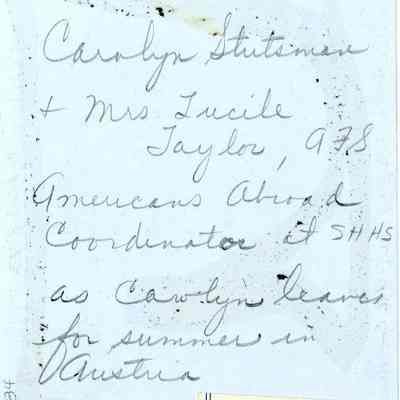 Carolyn Stutsman
+ Mrs Lucile
Taylor, AFS
Americans Abroad
Coordinator at SHHS
as Carolyn leaves
for summer in
Austria